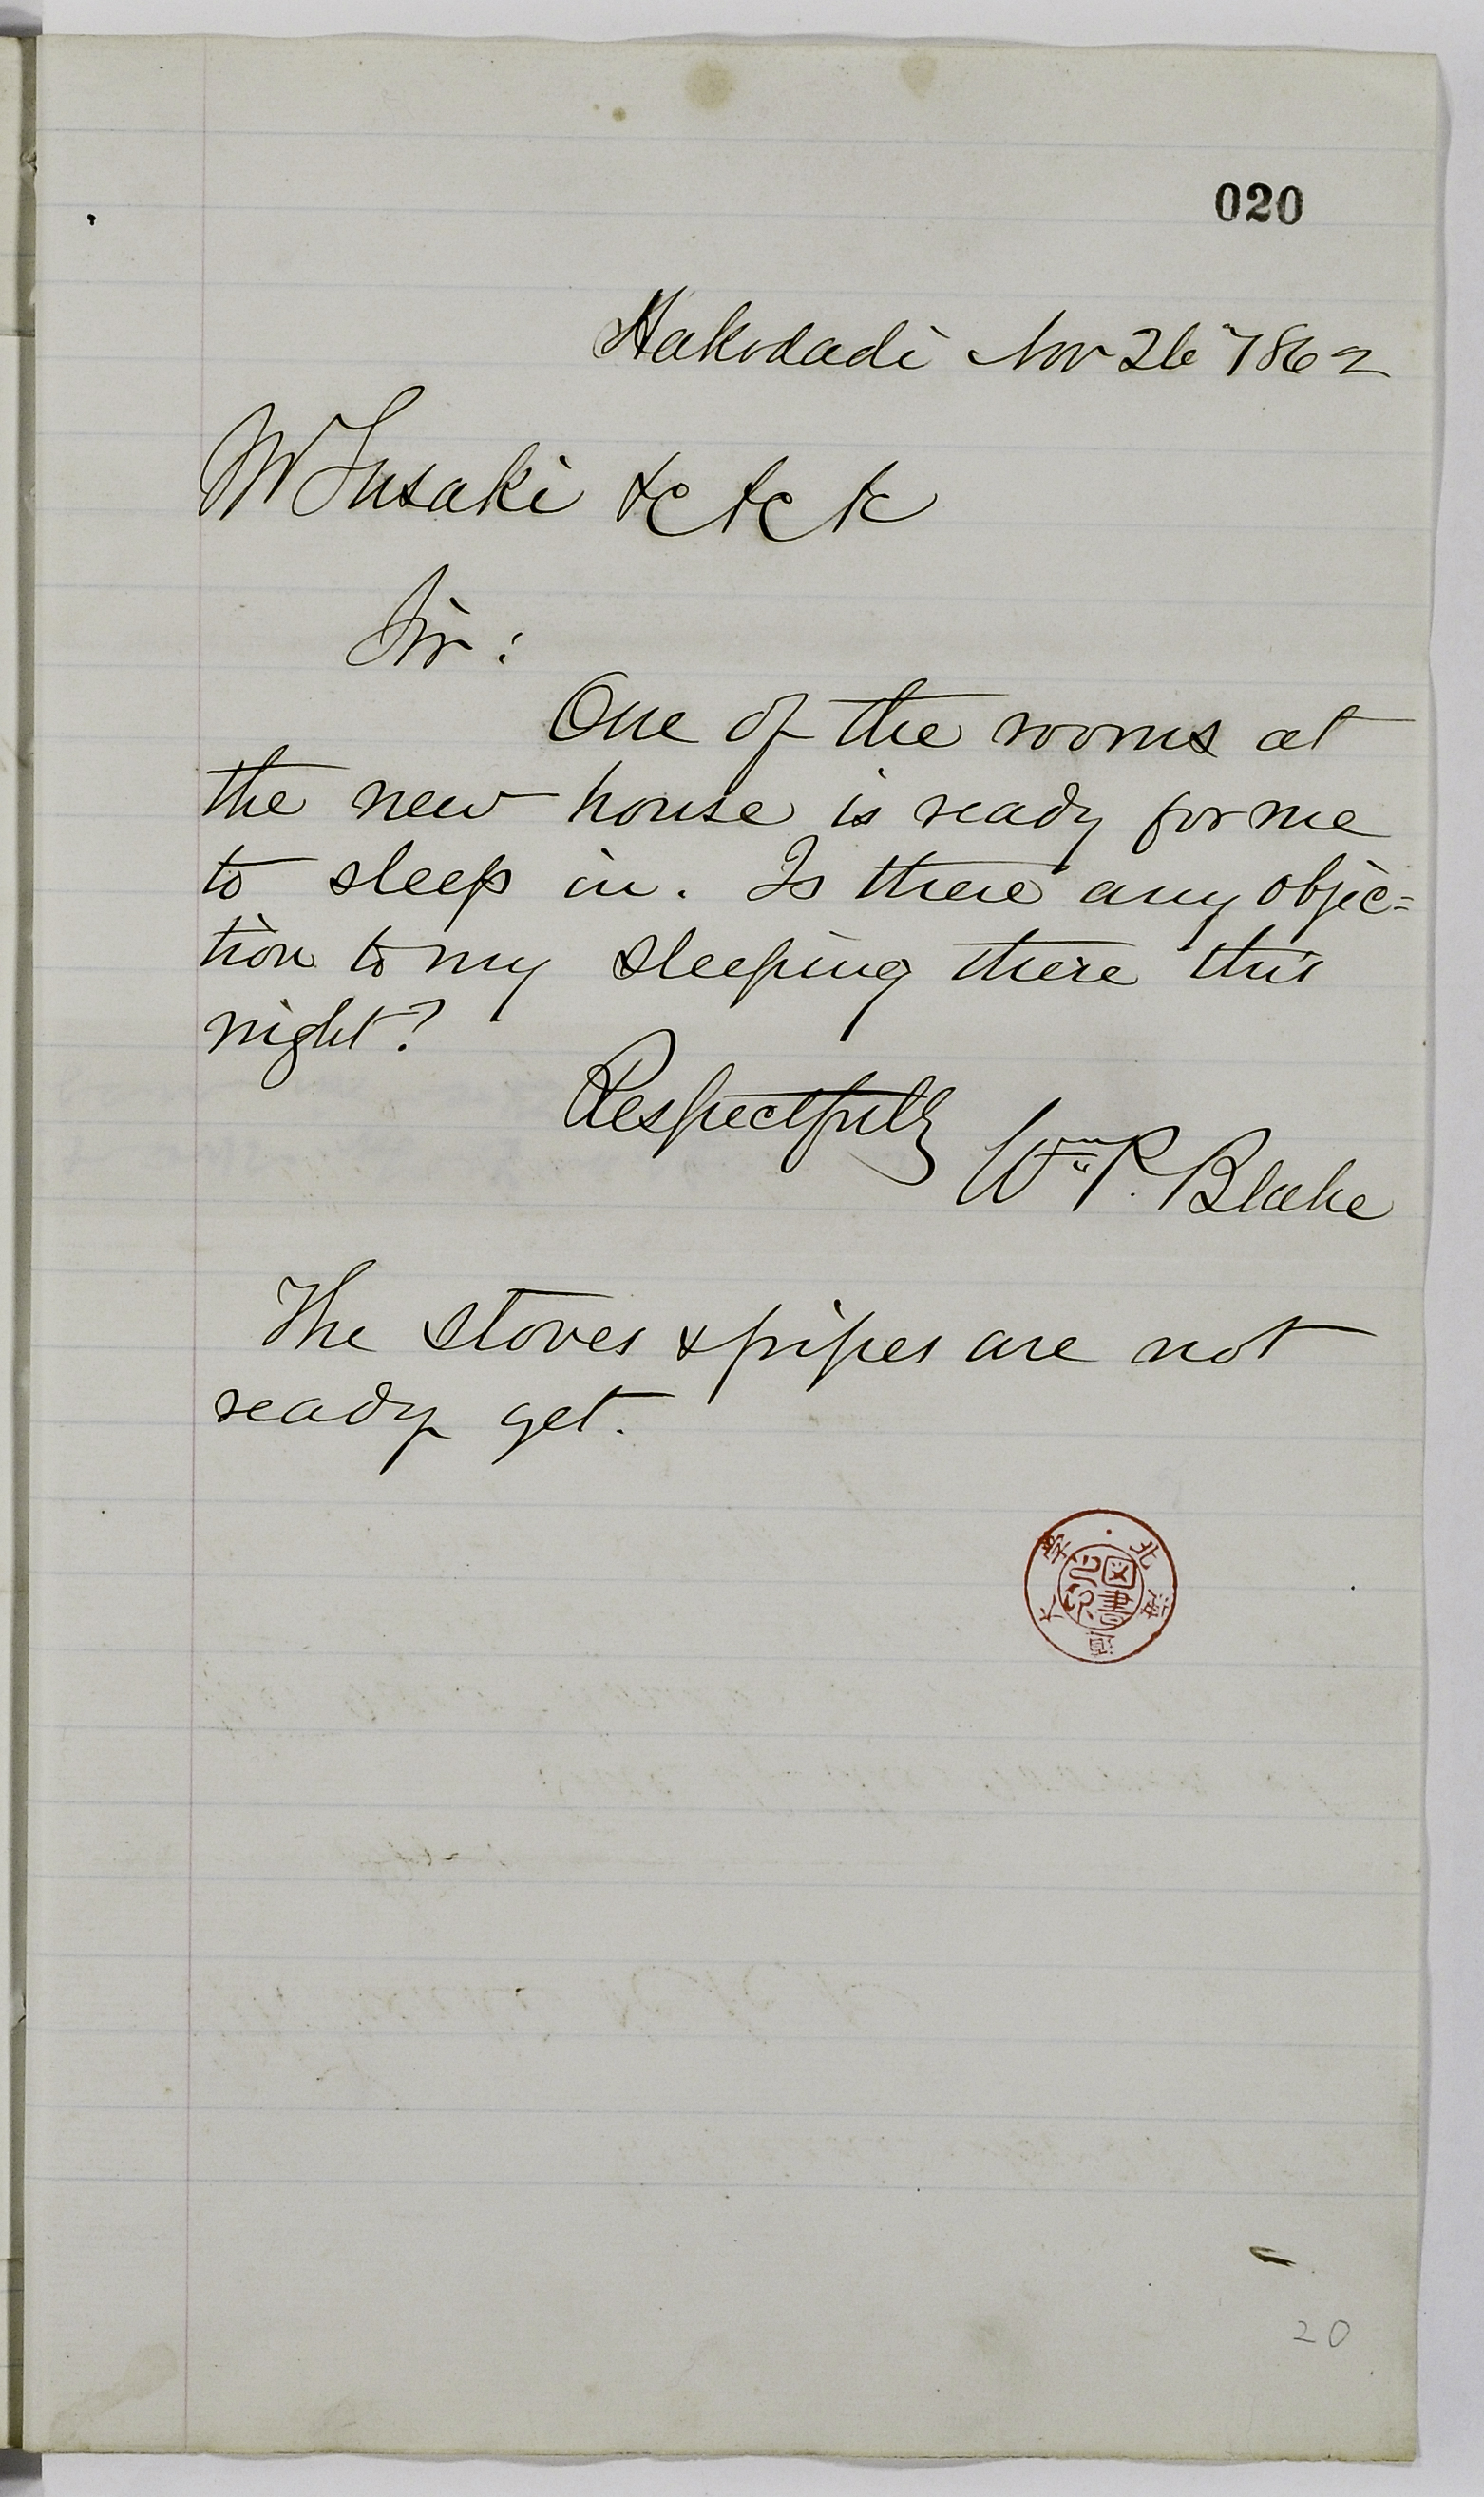 020
Hakodadi Nov 26 1862
M Jusaki &c &c &c
Sir:
One of the rooms at
the new house is ready for me
to sleep in. Is there any objec=
tion to my sleeping there this
night?
Respectfully
Wm P. Blake
The stoves & pipes are not
ready yet.
北海道大學
図書之印
20